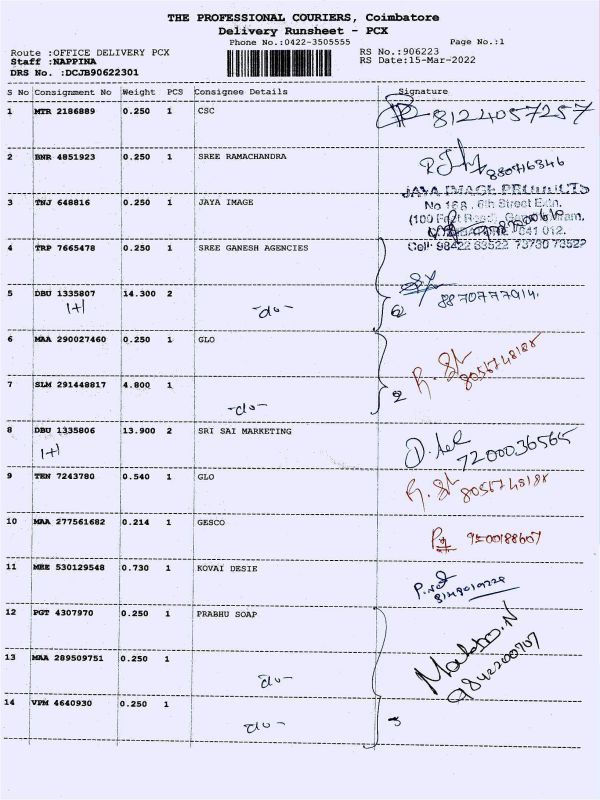 THE PROFESSIONAL COURIERS, Coimbatore
Delivery Runsheet - PCX
Phone No.:0422-3505555 Page No.:1
Route :OFFICE DELIVERY PCX RS No.:906223
Staff :NAPPINA RS Date:15-Mar-2022
DRS No. :DCJB90622301
S No Consignment No Weight PCS Consignee Details Signature
1 MTR 2186889 0.250 1 CSC 8124057257
2 BNR 4851923 0.250 1 SREE RAMACHANDRA
3 TNJ 648816 0.250 1 JAYA IMAGE
JAYA IMAGE PRODUCTS
No 168, 6th Street Extn.
(100 Feet Road),
641 012.
Cell: 98422 63522 73730 73522
4 TRP 7665478 0.250 1 SREE GANESH AGENCIES
5 DBU 1335807 14.300 2 -do- 8870777914.
1+1
6 MAA 290027460 0.250 1 GLO 8056748188
7 SLM 291448817 4.800 1 -do- 2
8 DBU 1335806 13.900 2 SRI SAI MARKETING 7200036565
1+1
9 TEN 7243780 0.540 1 GLO 8056748188
10 MAA 277561682 0.214 1 GESCO 9500188607
11 MEE 530129548 0.730 1 KOVAI DESIE
12 PGT 4307970 0.250 1 PRABHU SOAP 9842200707
13 MAA 289509751 0.250 1 -do-
14 VPM 4640930 0.250 1 -do- 3